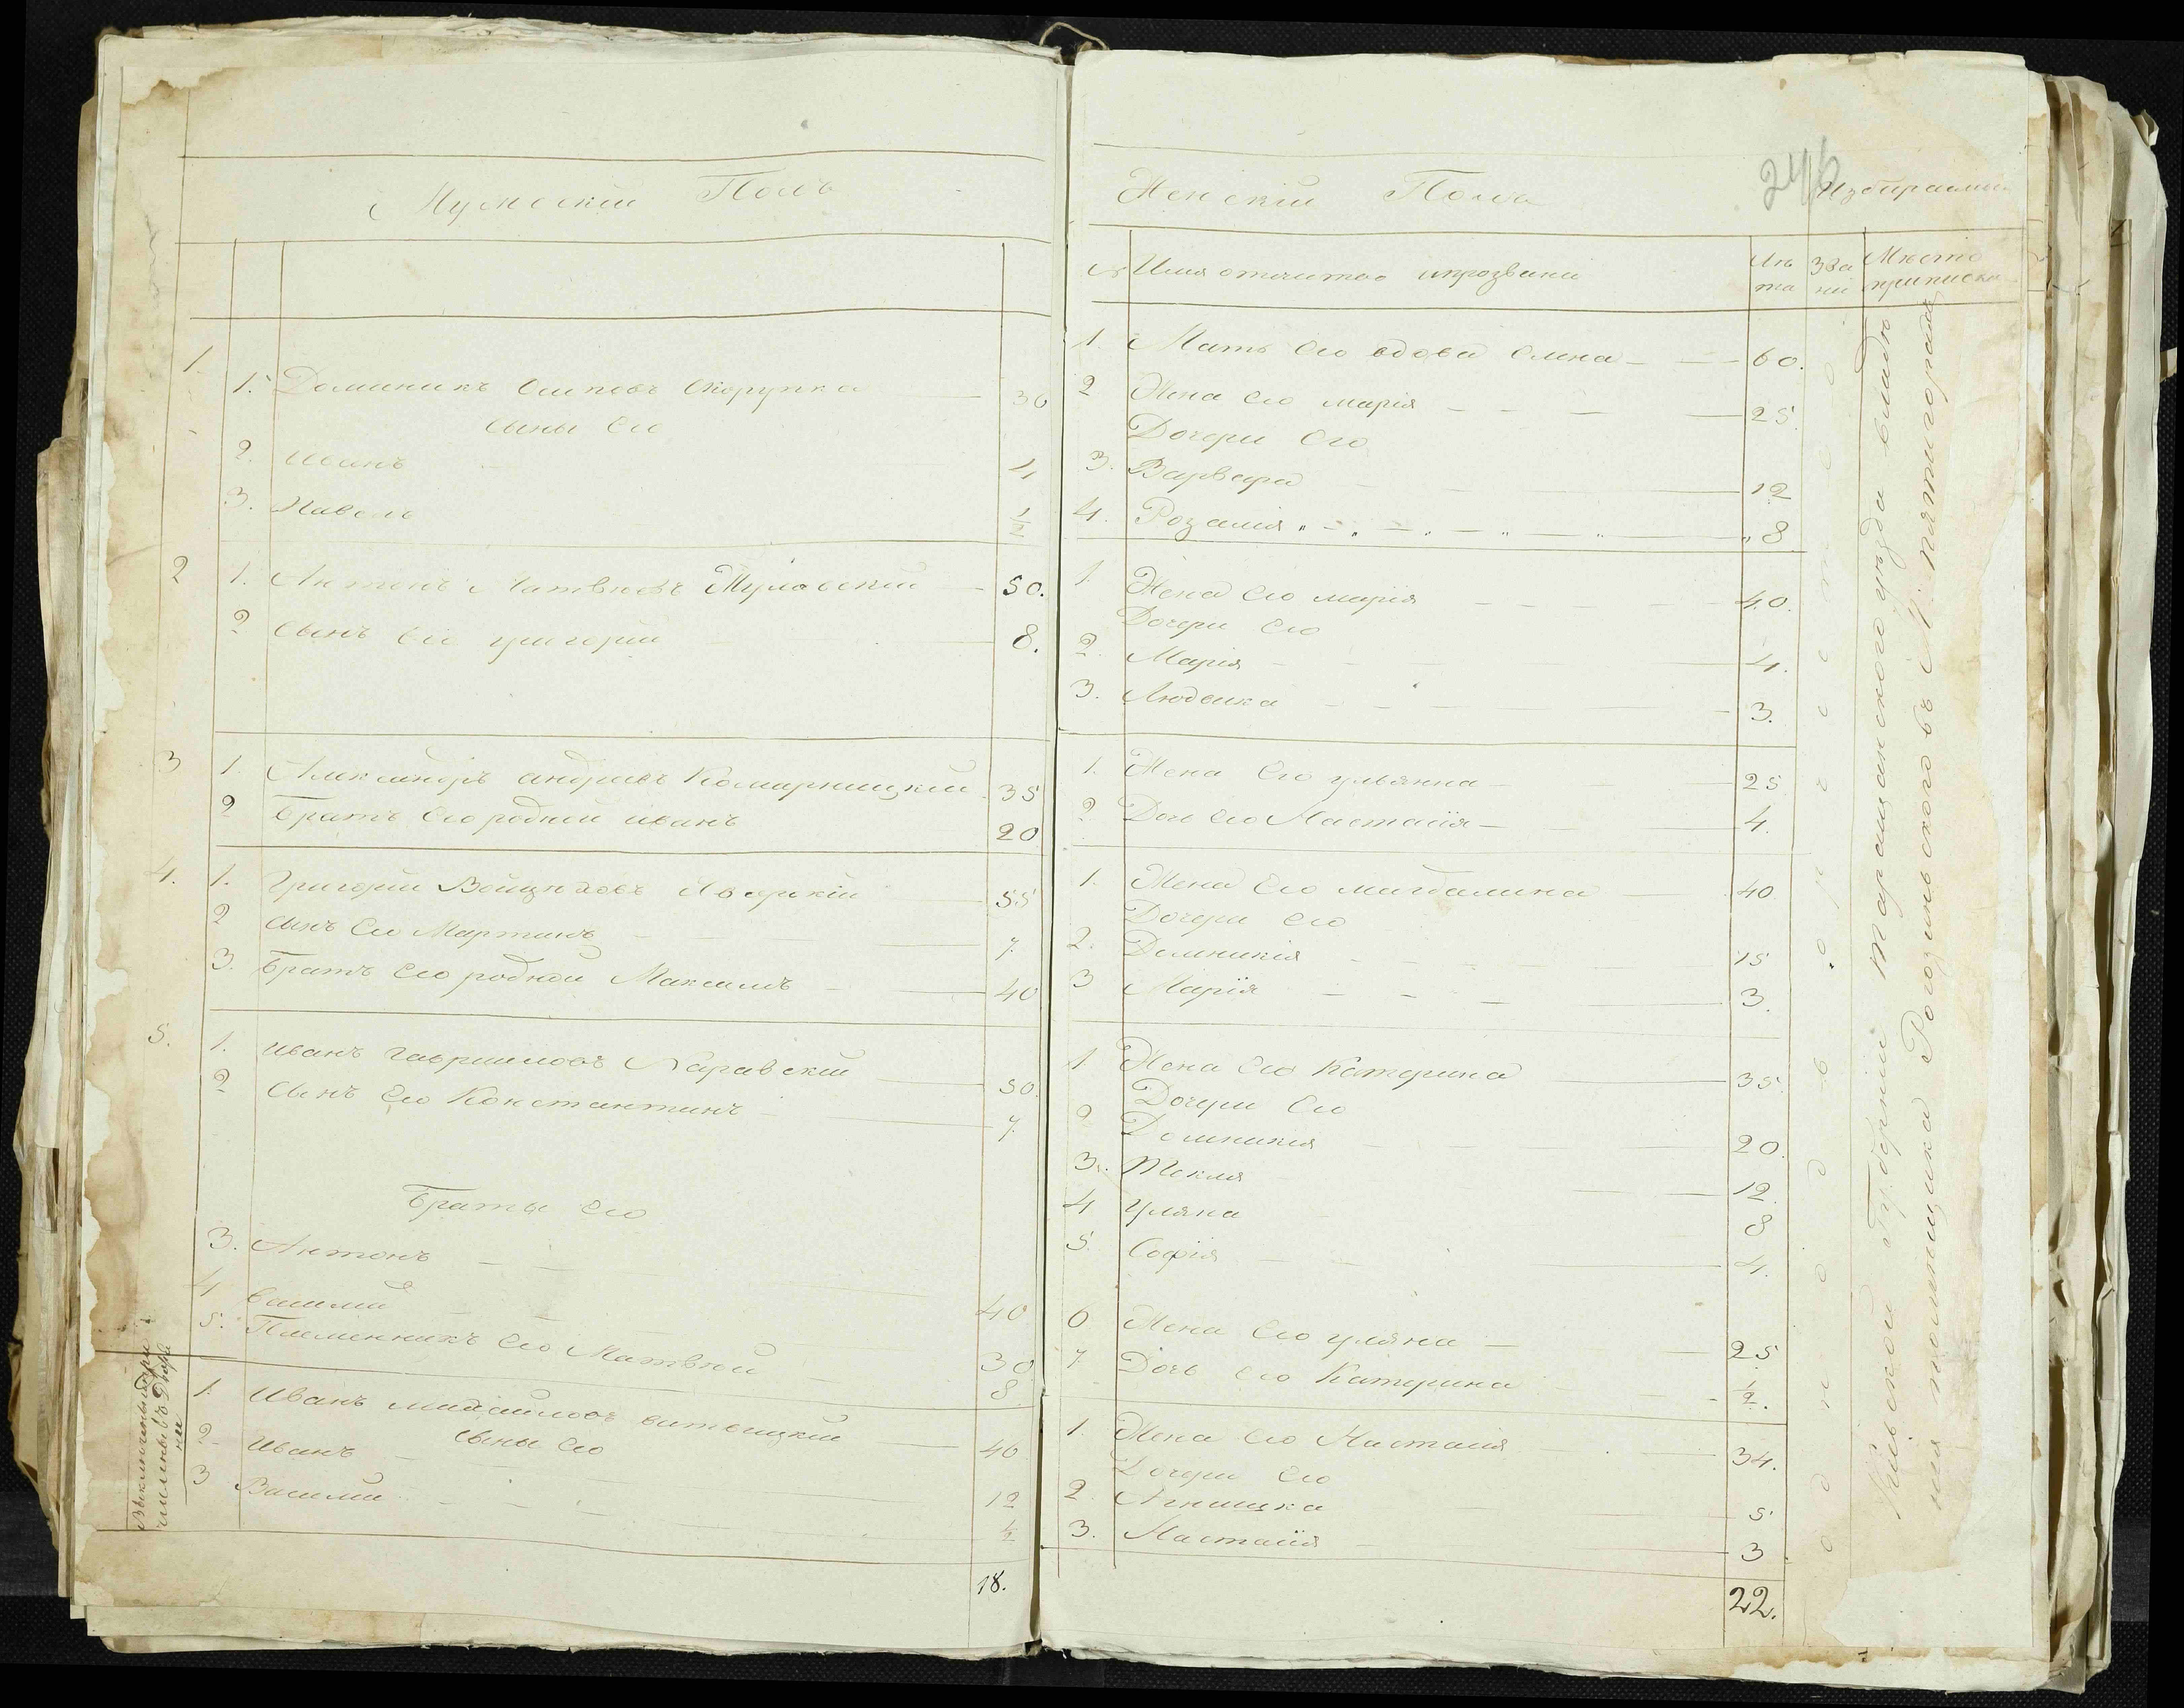 Мужескій Полъ
1.
1. Доминикъ Осиповъ Скорупка 30
сыны Его
2. Иванъ 4
3. Павелъ 1/2
2
1. Антонъ Матвѣевъ Жулавскій 50.
2 Сынъ Его григорій 8.
3
1. Александръ андреевъ Комарницкій 35
2 Братъ Его родный иванъ 20
4.
1. Григорій Войцѣховъ Яворскій 55
2 сынъ Его Мартинъ 7.
3. Братъ Его родной Максимъ 40
5.
1. иванъ гавриловъ 50.
2 Сынъ Его Константинъ 7.
Браты Его
3. Антонъ 40
4 василій 30
5. Племенникъ Его Матвѣй 8
1. Иванъ михайловъ 40
сыны Его
2 Иванъ 12
3 Василій 1/2
18.
246
Женскій Полъ
Избираемый
№ Имя отчество ипрозваніе Лѣта Званіе Мѣсто приписки
1. Мать Его вдова Елена 60.
2 Жена Его марія 25.
Дочери Его
3. Варвара 12
4. Розалія 8
1. Жена Его марія 40.
Дочери Его
2. Марія 4.
3. Людвика 3.
1. Жена Его ульянна 25
2 Дочь Его Настасія 4.
1. Жена Его магдалина 40
Дочери Его
2. Домникія 15
3 Марія 3.
1 Жена Его Катерина 35.
Дочери Его
2 Домникія 20.
3. Текля 12.
4 Уляна 8
5. Софія 4.
6 Жена Его уляна 25
7. Дочь Его Катерина 1/2.
1. Жена Его Настасія 34.
Дочери Его
2 Агнишка 5
3. Настасія 3
22.
однодворчество
Кіевской Губерніи таращанского уѣзда
помѣщика въ М: пятигорахъ